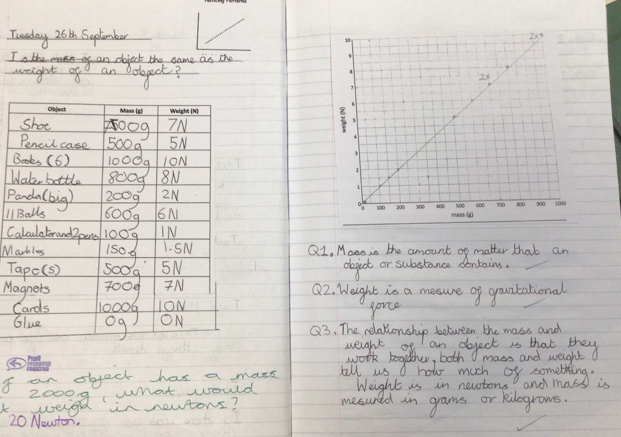 Tuesday 26th September
Is the mass of an object the same as the
weight of an object?
Object Mass (g) Weight (N)
Shoe 700g 7N
Pencil case 500g 5N
Books (6) 1000g 10N
Water bottle 800g 8N
Panda (big) 200g 2N
11 Balls 600g 6N
Calculator and 2 pens 100g 1N
Marbles 150g 1.5N
Tape(s) 500g 5N
Magnets 700g 7N
Cards 1000g 10N
Glue 0g 0N
Pupil
response
required
an object has a mass
2000g, what would
weigh in newtons?
20 Newton.
10
9
8
7
6
5
4
3
2
1
0
weight (N)
0 100 200 300 400 500 600 700 800 900 1000
mass (g)
2x
2x
Q1. Mass is the amount of matter that an
object or substance contains.
Q2. Weight is a mesure of gravitational
force
Q3. The relationship between the mass and
weight of an object is that they
work together, both mass and weight
tell us how much of something.
Weight is in newtons and mass is
mesured in grams or kilograms.